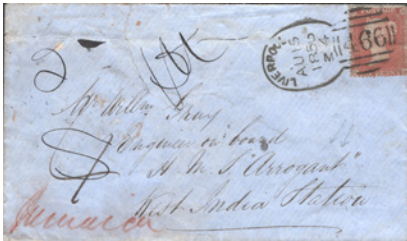 2
LIVERPOOL
AU 15
185
466
Mr Willm Gray
Engineer on board
H. M. S "Arrogant"
West India Station
Jamaica